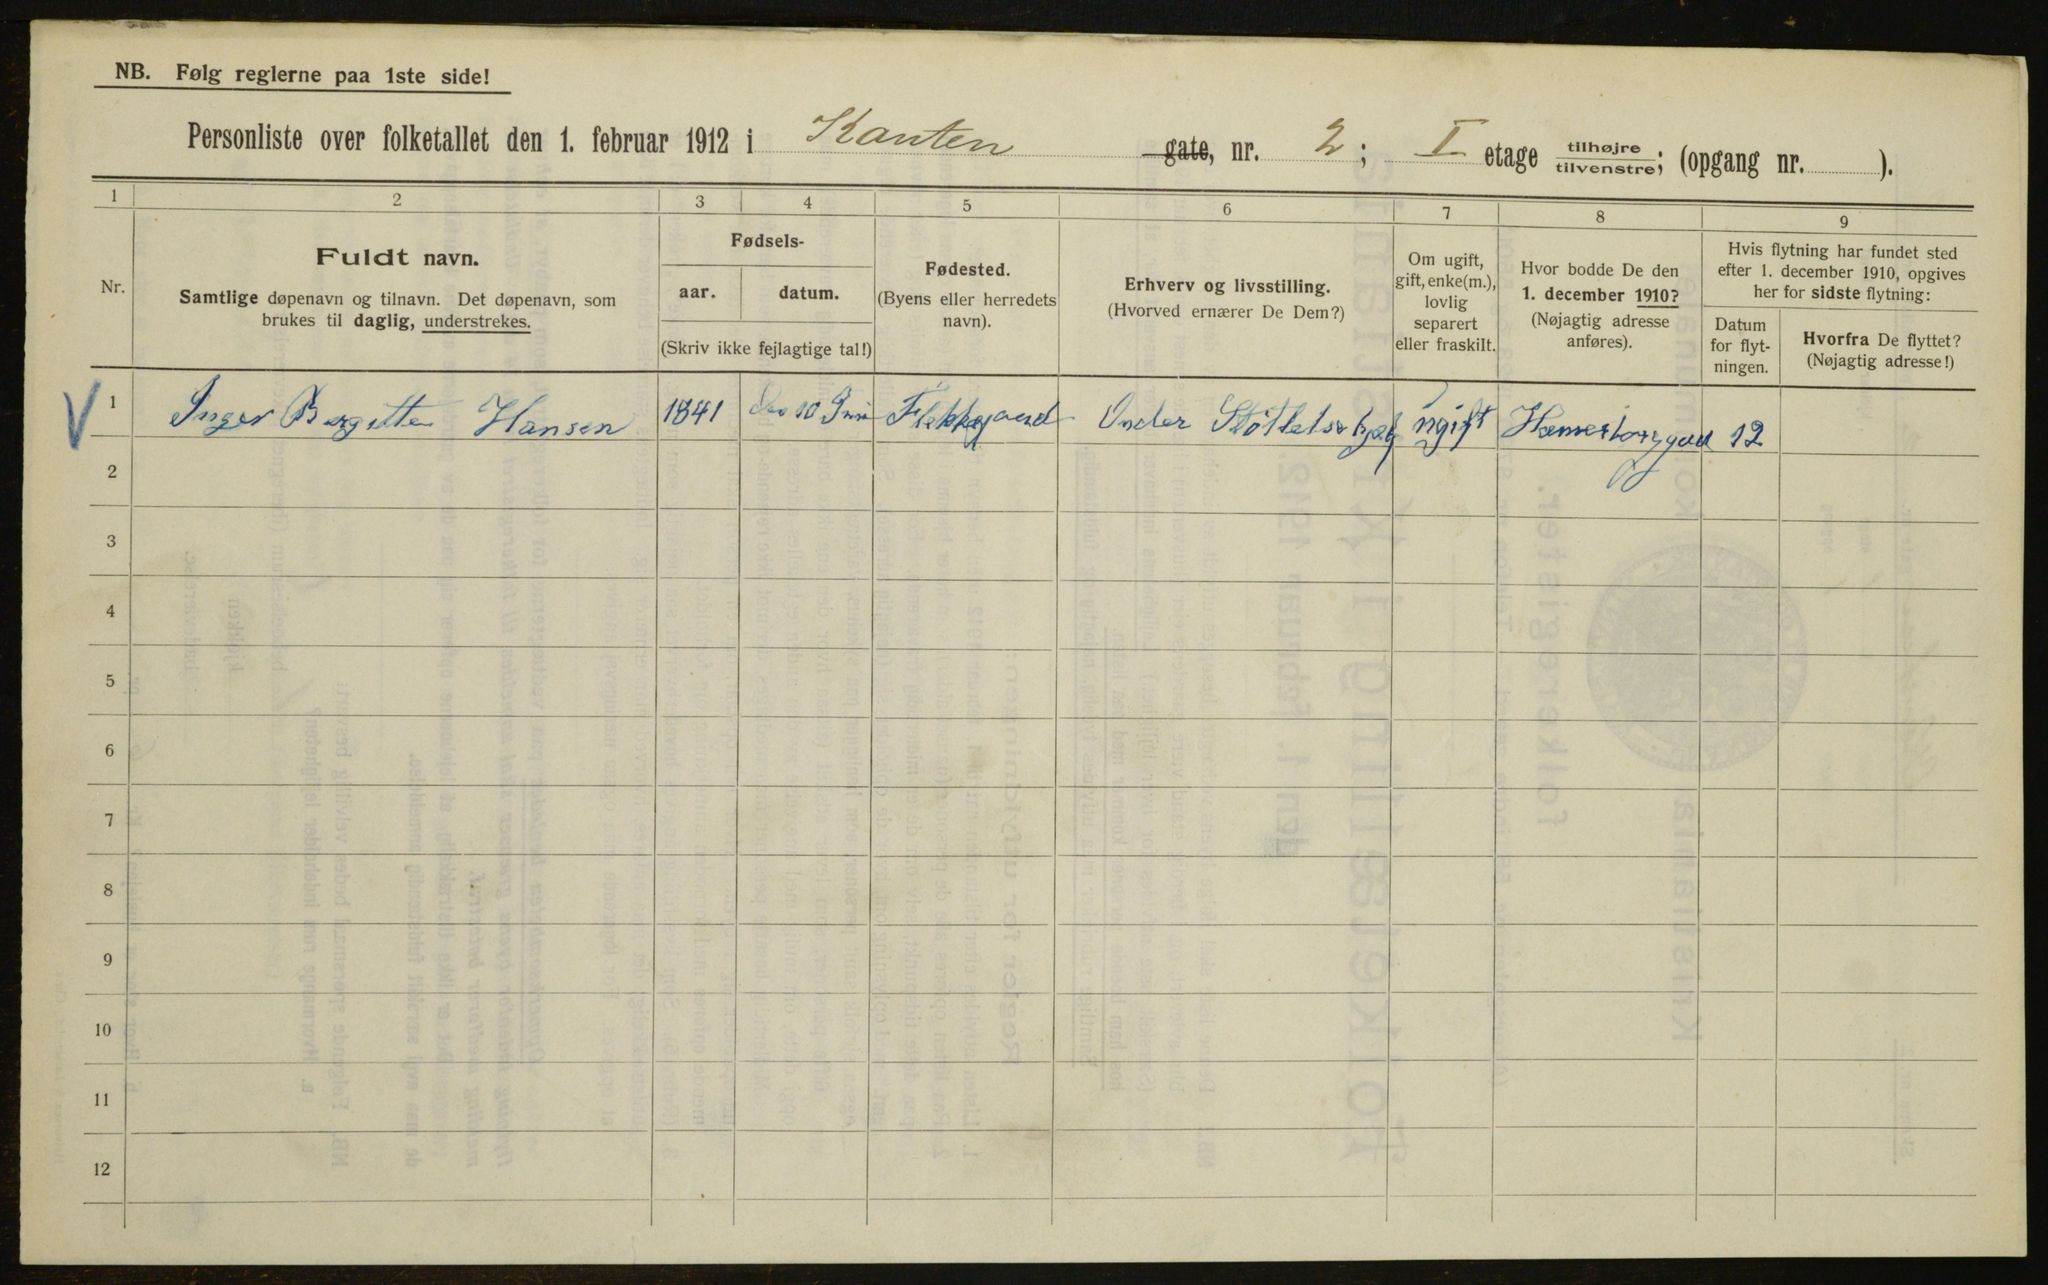 NB. Følg reglerne paa 1ste side!
Personliste over folketallet den 1. februar 1912 i Kanten gate, nr. 2; I etage tilhøjre/tilvenstre; (opgang nr. ).
1 2 3 4 5 6 7 8 9
Nr.
Fuldt navn.
Samtlige døpenavn og tilnavn. Det døpenavn, som
brukes til daglig, understrekes.
Fødsels-
aar. datum.
(Skriv ikke fejlagtige tal!)
Fødested.
(Byens eller herredets
navn).
Erhverv og livsstilling.
(Hvorved ernærer De Dem?)
Om ugift,
gift, enke(m.),
lovlig
separert
eller fraskilt.
Hvor bodde De den
1. december 1910?
(Nøjagtig adresse
anføres).
Hvis flytning har fundet sted
efter 1. december 1910, opgives
her for sidste flytning:
Datum
for flyt-
ningen.
Hvorfra De flyttet?
(Nøjagtig adresse!)
V 1 Inger Bergitte Hansen 1841 10 Flekkegaard Under ugift 12
2
3
4
5
6
7
8
9
10
11
12